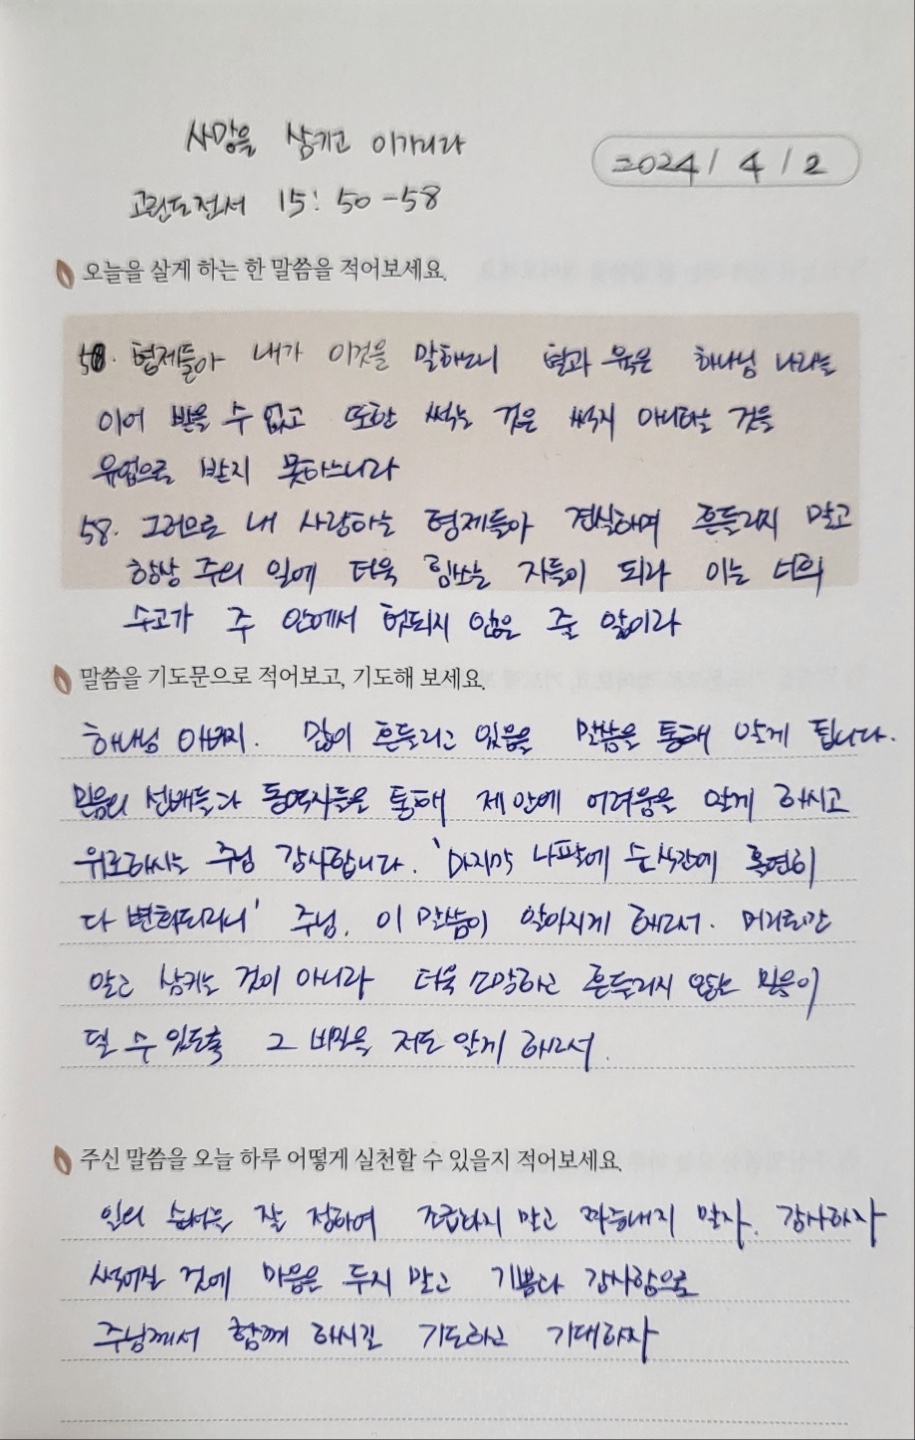 사망을 삼키고 이기리라
2024 / 4 / 2
고린도전서 15 : 50 - 58
오늘을 살게 하는 한 말씀을 적어보세요.
50. 형제들아 내가 이것을 말하노니 혈과 육은 하나님 나라를
이어 받을 수 없고 또한 썩는 것은 썩지 아니하는 것을
유업으로 받지 못하느니라
58. 그러므로 내 사랑하는 형제들아 견실하며 흔들리지 말고
항상 주의 일에 더욱 힘쓰는 자들이 되라 이는 너희
수고가 주 안에서 헛되지 않은 줄 앎이라
말씀을 기도문으로 적어보고, 기도해 보세요.
하나님 아버지. 많이 흔들리고 있음을 말씀을 통해 알게 됩니다.
믿음의 선배들과 동역자들을 통해 제 안에 어려움을 알게 하시고
위로하시는 주님 감사합니다. '마지막 나팔에 순식간에 홀연히
다 변화되리니' 주님. 이 말씀이 알아지게 하소서. 머리로만
알고 삼키는 것이 아니라 더욱 소망하고 흔들리지 않는 믿음이
될 수 있도록 그 비밀을 저도 알게 하소서.
주신 말씀을 오늘 하루 어떻게 실천할 수 있을지 적어보세요.
일의 순서를 잘 정하여 조급하지 말고 짜증내지 말자. 감사하자
썩어질 것에 마음은 두지 말고 기쁨과 감사함으로
주님께서 함께 하시길 기도하고 기대하자